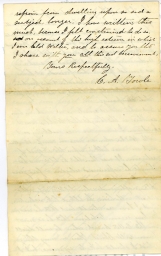 refrain from dwelling upon so sad a
subject longer. I have written this
much, because I felt constrained to do so
on account of the high esteem in which
I ever held Arthur, and to assure you that
I share with you all this sad bereavement.
Yours Respectfully,
C. A. Towle